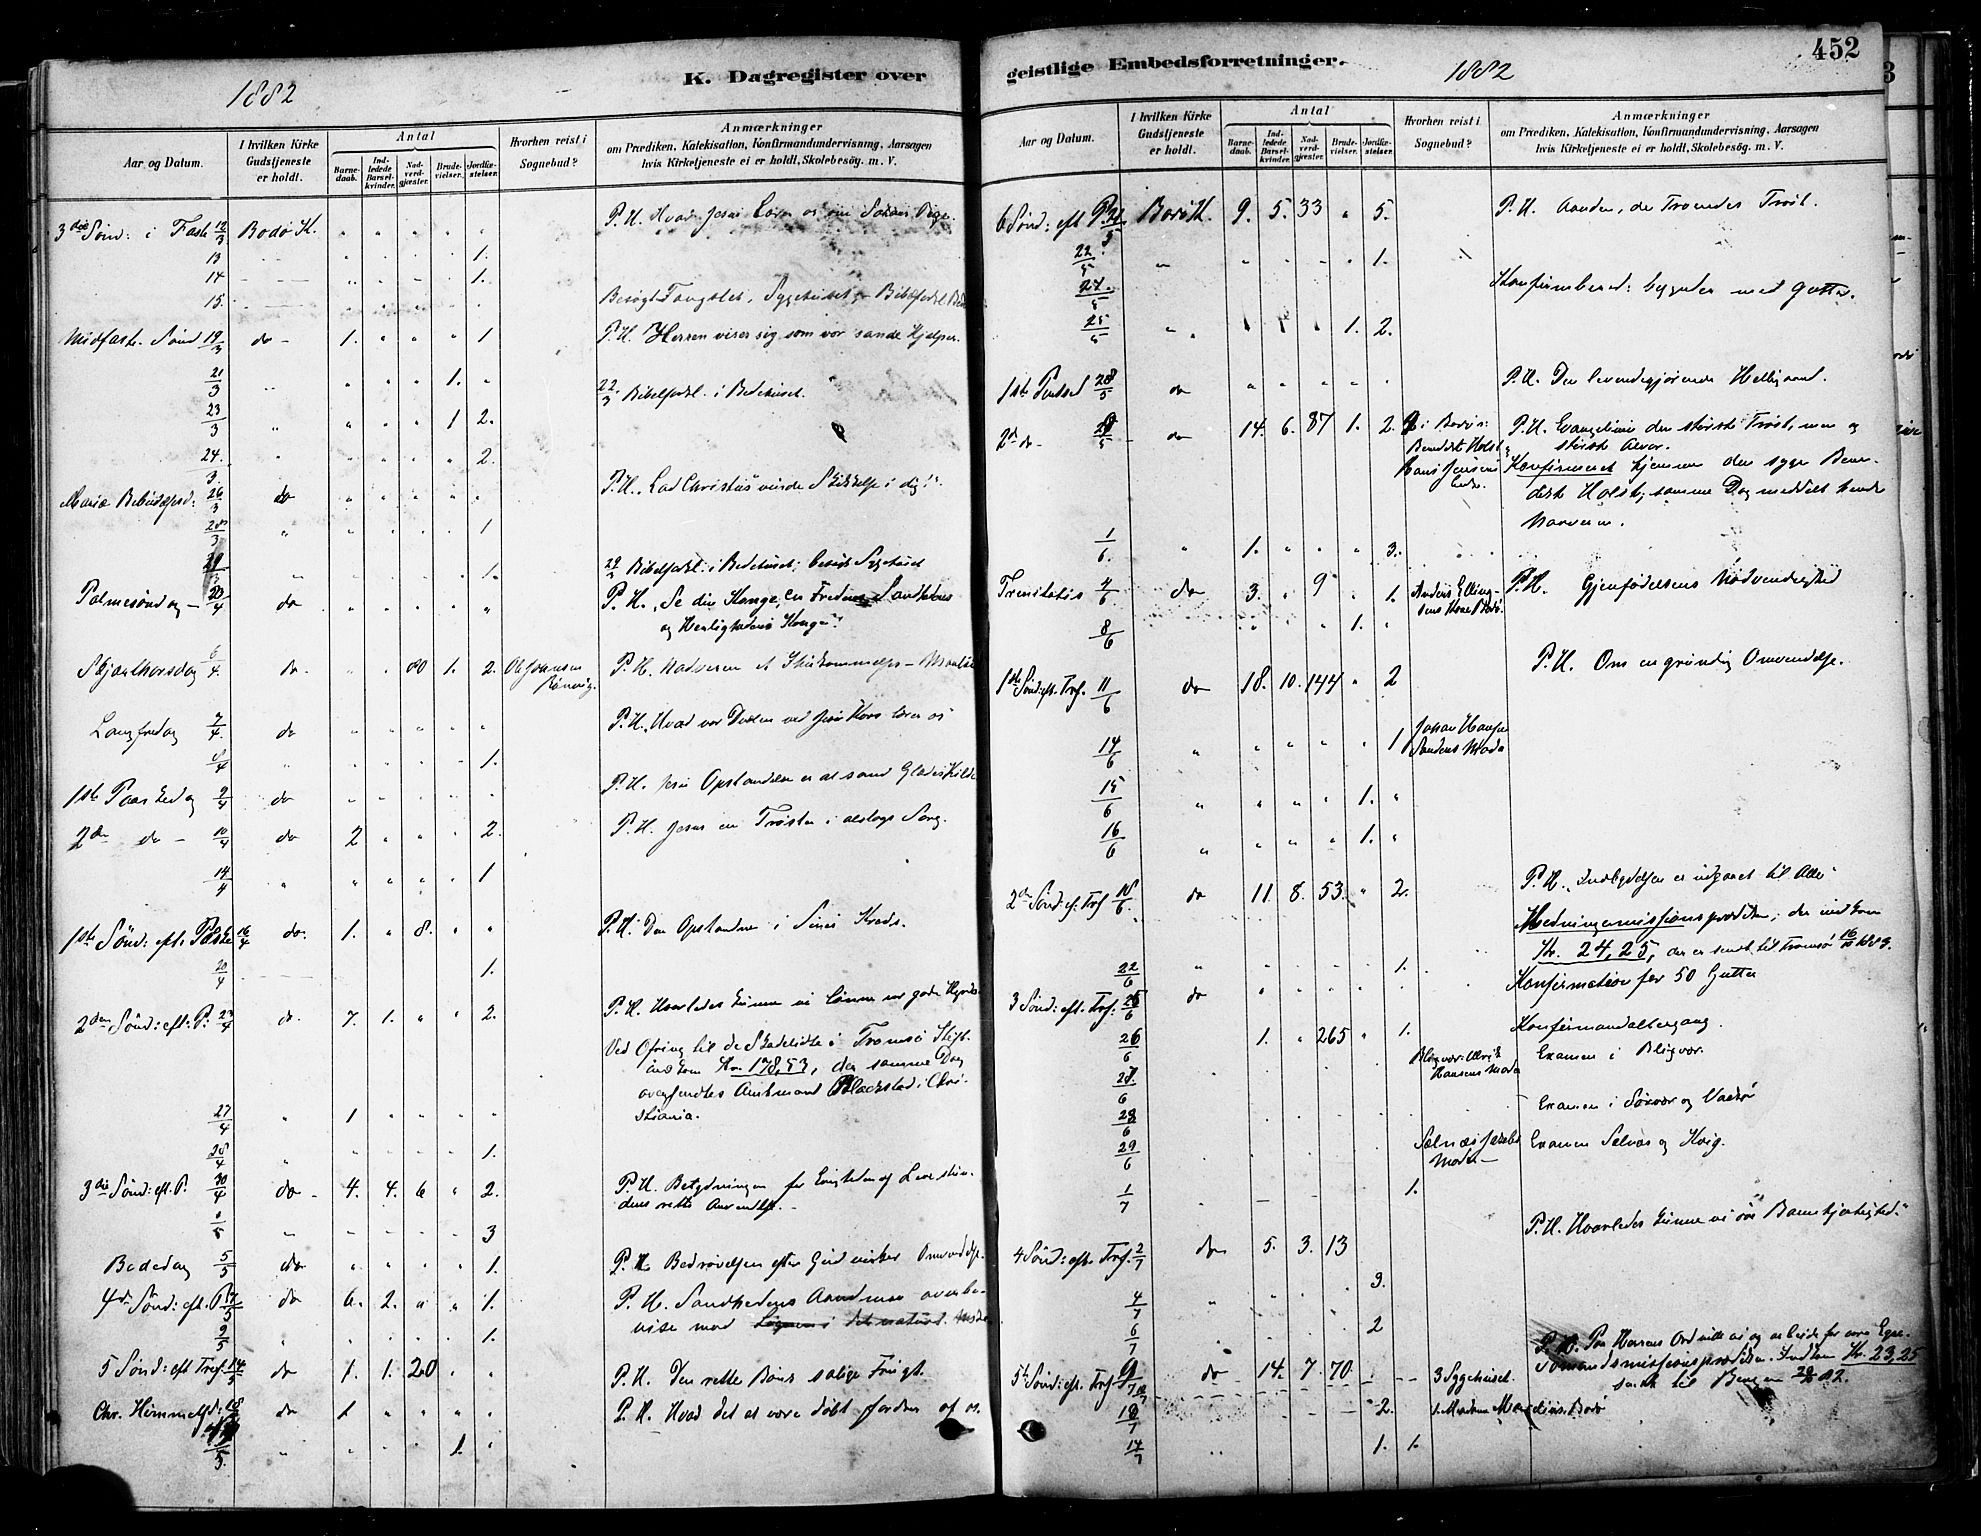 K. Dagregister over
1882
Aar og Datum.
I hvilken Kirke Gudstjeneste er holdt.
Antal
Barnedaab.
Indledede Barselkvinder.
Nadverdgjæster.
Brudevielser.
Jordfæstelser.
Hvorhen reist i Sognebud?
Anmærkninger
om Prædiken, Katekisation, Konfirmandundervisning, Aarsagen
hvis Kirketjeneste ei er holdt, Skolebesøg. m. V.
3die Sønd: i Faste 12/3 Bodø K. " " " " " P. H. Hvad Jesus lærer os om
13 " " " " 1.
14 " " " " 1.
15. Besøgt Fængslet, Sygehuset
Midfaste Sønd 19/3 do - 1. " " " 1 P. H. Herren viser sig som vor sande Hjælper.
21/3 " " " " 1. " 22/3 Bibelforkl. i Bedehuset.
23/3 " " " " 1 2.
24/3. " " " " " 2.
Mariæ Bebudelsesd: 26/3 do " " " " " P. H. "Lad Christus vinde Skikkelse i dig!"
28/3 " " " " " 1
29/3 " " " " " 1. 29/3 Bibelforkl. i Bedehuset; besøgt Sygehuset
Palmesøndag - do " " " " " P. H. "Se din Konge, en Fredens Sandhedens
og Herlighedens Konge"
Skjærthorsdag 6/4. do " " 80 1. 2. Ole Johansen Rønvig. P. H. Nadveren et Ihukommelses-Maaltid
Langfredag 7/4. do " " " " " P. H. Hvad vor Døden ved Jesu Kors lærer os
8/4 " " " " " 1.
1ste Paaskedag 9/4 do " " " " " P. H. Jesu Opstandelse er al sand Glædes Kilde
2den do - 10/4 do 2 " " " 2. P. H. Jesus en Trøster i alslags Sorg.
14/4 " " " " " 1
1ste Sønd: eft. Paaske 16/4 do. 1. " 8. " " P. H. Den Opstandne i Sines Kreds.
20/4 1.
2den Sønd: eft: P: 23/4 do. 7. 1. " " 2. P. H. Hvorledes kunne vi lønne vor gode Hyrde
Ved Ofring til de Skadelidte i Tromsø Stift
indkom Kr. 178,53, der samme Dag
oversendtes Amtmand Blackstad i Chri-
stiania.
27/4 " 1 " " " "
28/4 " " " " " 1.
3die Sønd: eft. P. 30/4 do - 4. 4. 6 " 2. P. H. Betydningen for Evigheden af Livestun-
dens rette Anvendelse. -
/5 " " " " " 3
Bededag 5/5 do " " " " 1. P. H. Bedrøvelsen efter Gud virker Omvendelse.
4de Sønd: eft. P. 7/5 do 6. 2. " " 1. P. H. Sandhedens Aand maa overbe-
vise mod Løgnens i det naturl.
9/5 " " " " " 1.
5 Sønd: eft Tref. 14/5 do 1. 1. 20 " " P. H. Den rette Bøns salige Frugt.
Chr. Himmelf. d: 18/5 do 1 " " " " P. H. Hvad det at være døbt fordrer af os.
19/5. " " " " 1. "
geistlige Embedsforretninger.
1882
452
Aar og Datum.
I hvilken Kirke Gudstjeneste er holdt.
Antal
Barnedaab.
Indledede Barselkvinder.
Nadverdgjæster.
Brudevielser.
Jordfæstelser.
Hvorhen reist i Sognebud?
Anmærkninger
om Prædiken, Katekisation, Konfirmandundervisning, Aarsagen
hvis Kirketjeneste ei er holdt, Skolebesøg. m. V.
6 Sønd: eft P. 21/5 Bodø K. 9. 5. 33 " 5. P. H. Aanden, de Troendes Trøst.
22/5 " " " " " 1.
24/5 Konfirmbered: begynder med Gutter.
25/5 " " " " 1. 2.
1ste Pintsed 28/5 do " " " " " P. H. Den levendegjørende Helligaand.
2den do - 29/5 - do 14. 6. 87 1. 2. i Bodø: P. H. Evangeliets den største Trøst, men og
Benedikt Holst største Alvor.
Hans Jensens Konfirmeret hjemme den syge Bene-
Enke. dikte Holst; samme Dag meddelt hende
Nadveren.
1/6. " 1. " " " 3.
Trinitatis 4/6 do 3. " 9 " 1. Anders Elling- P. H. Gjenfødelsens Nødvendighed
sens Kone Bodø.
8/6 " " " 1. "
1ste Sønd: eft. Tref. 11/6 do 18. 10. 144 " 2 P. H. Om en grundig Omvendelse.
14/6 " " " " " 1 Johan Hansen Sandens Moder
15/6 " " " " 1. "
16/6 " " " " 1. "
2den Sønd: ef: Tref 18/6. do 11. 8. 53. " 2. P. H. "Indbydelsen er udgaaet til Alle"
Hedningemissionsprædiken; der indkom
Kr. 24,25, der er sendt til Tromsø
22/6 " " " " " 1. Konfirmation for 50 Gutter
3 Sønd: eft. Tref. 25/6 do " " " " "
26/6 1. " 265 " 1. Konfirmandaltergang.
Bligvær: Ulrik Hansens Moder Examen i Bligvær.
27/6
28/6 Examen i Sørvær og Vadø
29/6 Moder - Examen Selvær og Kvig.
1/7 1.
4 Sønd: eft. Tref. 2/7 do 5. 3. 13 P. H. Hvorledes kunne vi øve Barmhjertighed."
4/7 " 3.
6/7 2
5te Sønd: eft. Tref 9/7 do 14. 7 70. 3 Sygehuset. P. H. Paa Herrens Ord ville vi og arbeide for
Sømandsmissionsprædiken. Indkom Kr. 23,25
sendt til Bergen
18/7 2. Bodø
14/7 1. 1.